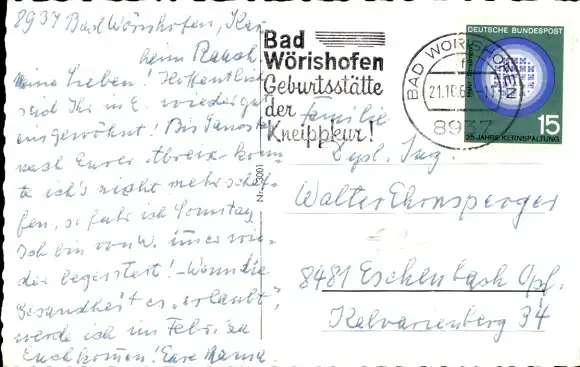 8937 Bad Wörishofen, Kur
heim
Meine Lieben! Hoffentlich
seid Ihr in E. wieder gut
eingewöhnt! Bis Samstag
nach Eurer Abreise konn
te ich's nicht mehr schaf-
fen, so fuhr ich Sonntag
Ich bin von W. immer wie-
der begeistert! - Wenn die
Gesundheit es "erlaubt",
werde ich im Febr. zu
Euch kommen! Eure Mama
Bad
Wörishofen
Geburtsstätte
der
Kneippkur!
BAD WÖRISHOFEN
f
21.10.6
8937
DEUTSCHE BUNDESPOST
15
25 JAHRE KERNSPALTUNG
Familie
Dypl. Ing.
Walter Ehrnsperger
8481 Eschenbach Opf.
Kalvarienberg 34